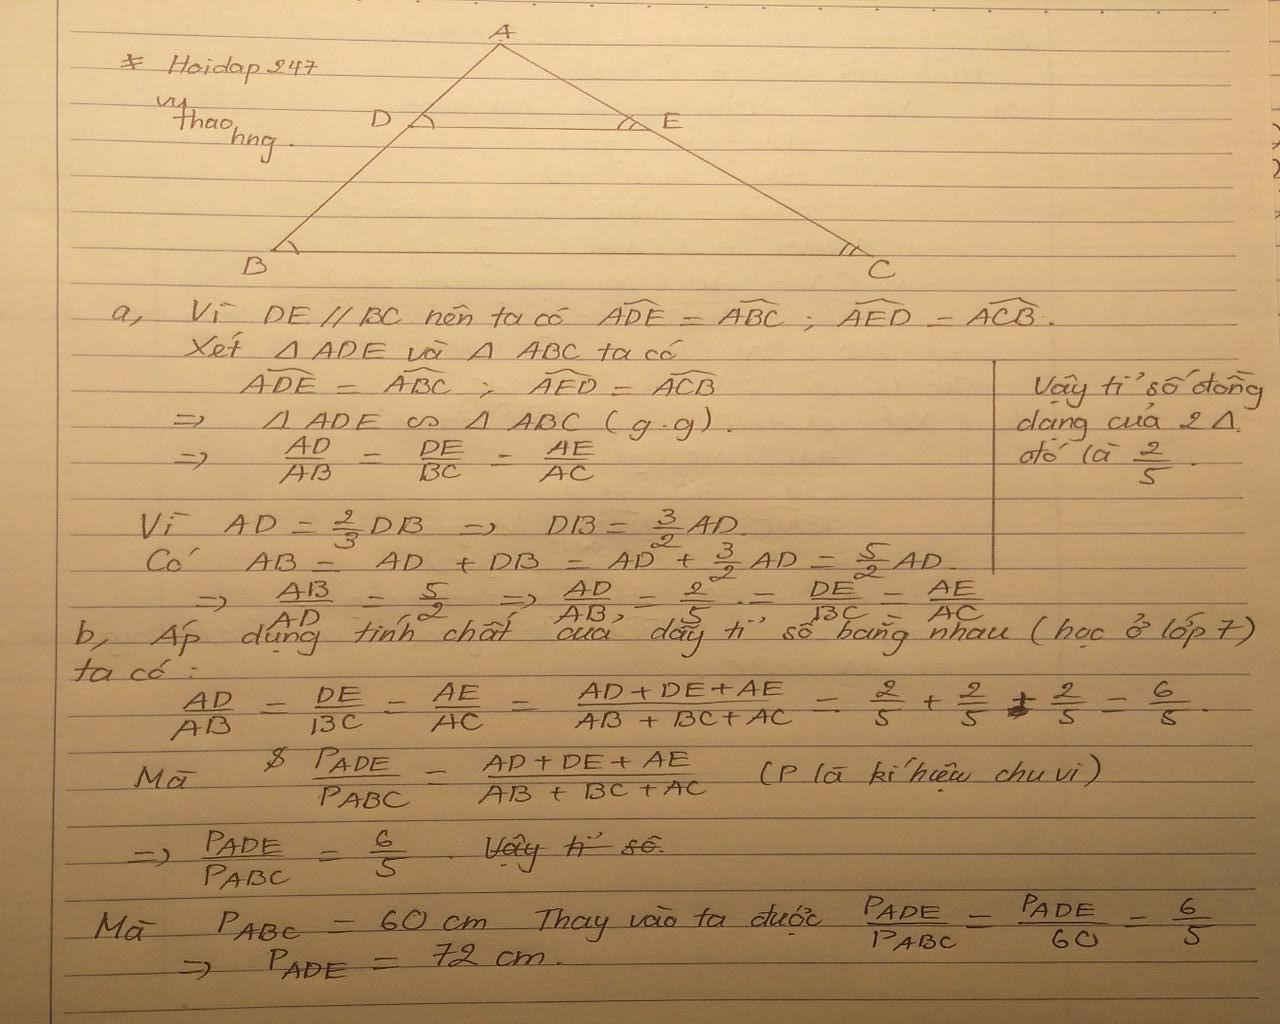 A
* Hoidap 247
vy
thao
hng.
D
E
B
C
a, Vì DE // BC nên ta có ADE = ABC ; AED = ACB.
Xét Δ ADE và Δ ABC ta có
ADE = ABC ; AED = ACB
=> Δ ADE ∽ Δ ABC (g.g).
=> AD/AB = DE/BC = AE/AC
Vậy tỉ số đồng
dạng của 2 Δ
đó là 2/5.
Vì AD = 2/3 DB => DB = 3/2 AD.
Có AB = AD + DB = AD + 3/2 AD = 5/2 AD.
=> AB/AD = 5/2 => AD/AB = 2/5 = DE/BC = AE/AC
b, Áp dụng tính chất của dãy tỉ số bằng nhau (học ở lớp 7)
ta có :
AD/AB = DE/BC = AE/AC = AD + DE + AE/AB + BC + AC = 2/5 + 2/5 + 2/5 = 6/5.
Mà $ PADE/PABC = AD + DE + AE/AB + BC + AC (P là kí hiệu chu vi)
=> PADE/PABC = 6/5. Vậy tỉ số.
Mà PABC = 60 cm Thay vào ta được PADE/PABC = PADE/60 = 6/5
=> PADE = 72 cm.